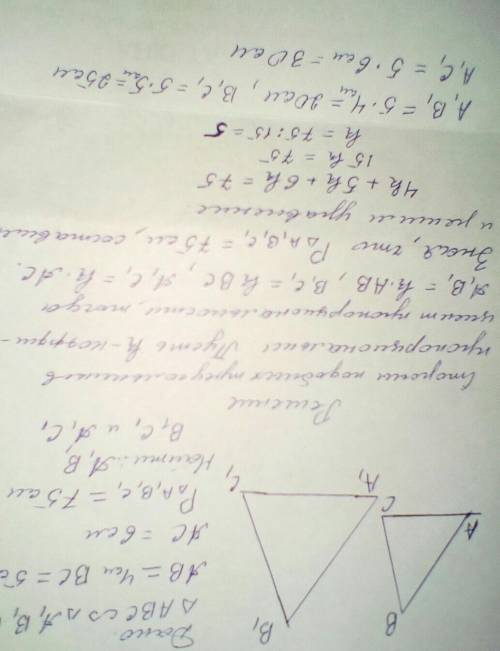 Дано:
△ABC ∽ △A₁B₁
AB = 4см BC = 5с
AC = 6см
P△A₁B₁C₁ = 75см
Найти: A₁B₁
B₁C₁ и A₁C₁
B
A
C
B₁
A₁
C₁
Решение
Стороны подобных треугольников
пропорциональны. Пусть k - коэффи-
циент пропорциональности, тогда
A₁B₁ = k·AB, B₁C₁ = k BC, A₁C₁ = k·AC.
Зная, что P△A₁B₁C₁ = 75см, составим
и решим уравнение
4k + 5k + 6k = 75
15k = 75
k = 75:15 = 5
A₁B₁ = 5·4см = 20см, B₁C₁ = 5·5см = 25см
A₁C₁ = 5·6см = 30см